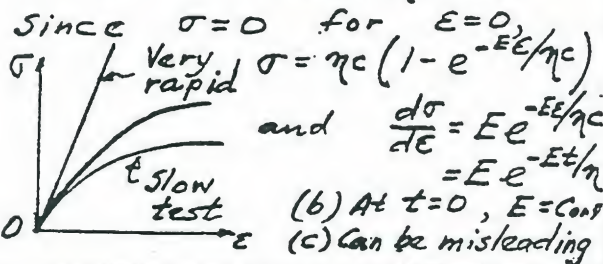 Since σ=0 for ε=0,
σ Very rapid σ = ηc (1 - e^{-Eε/ηc})
and dσ/dε = E e^{-Eε/ηc}
= E e^{-Et/η}
t Slow test
(b) At t=0, E=Con
O ε (c) Can be misleading